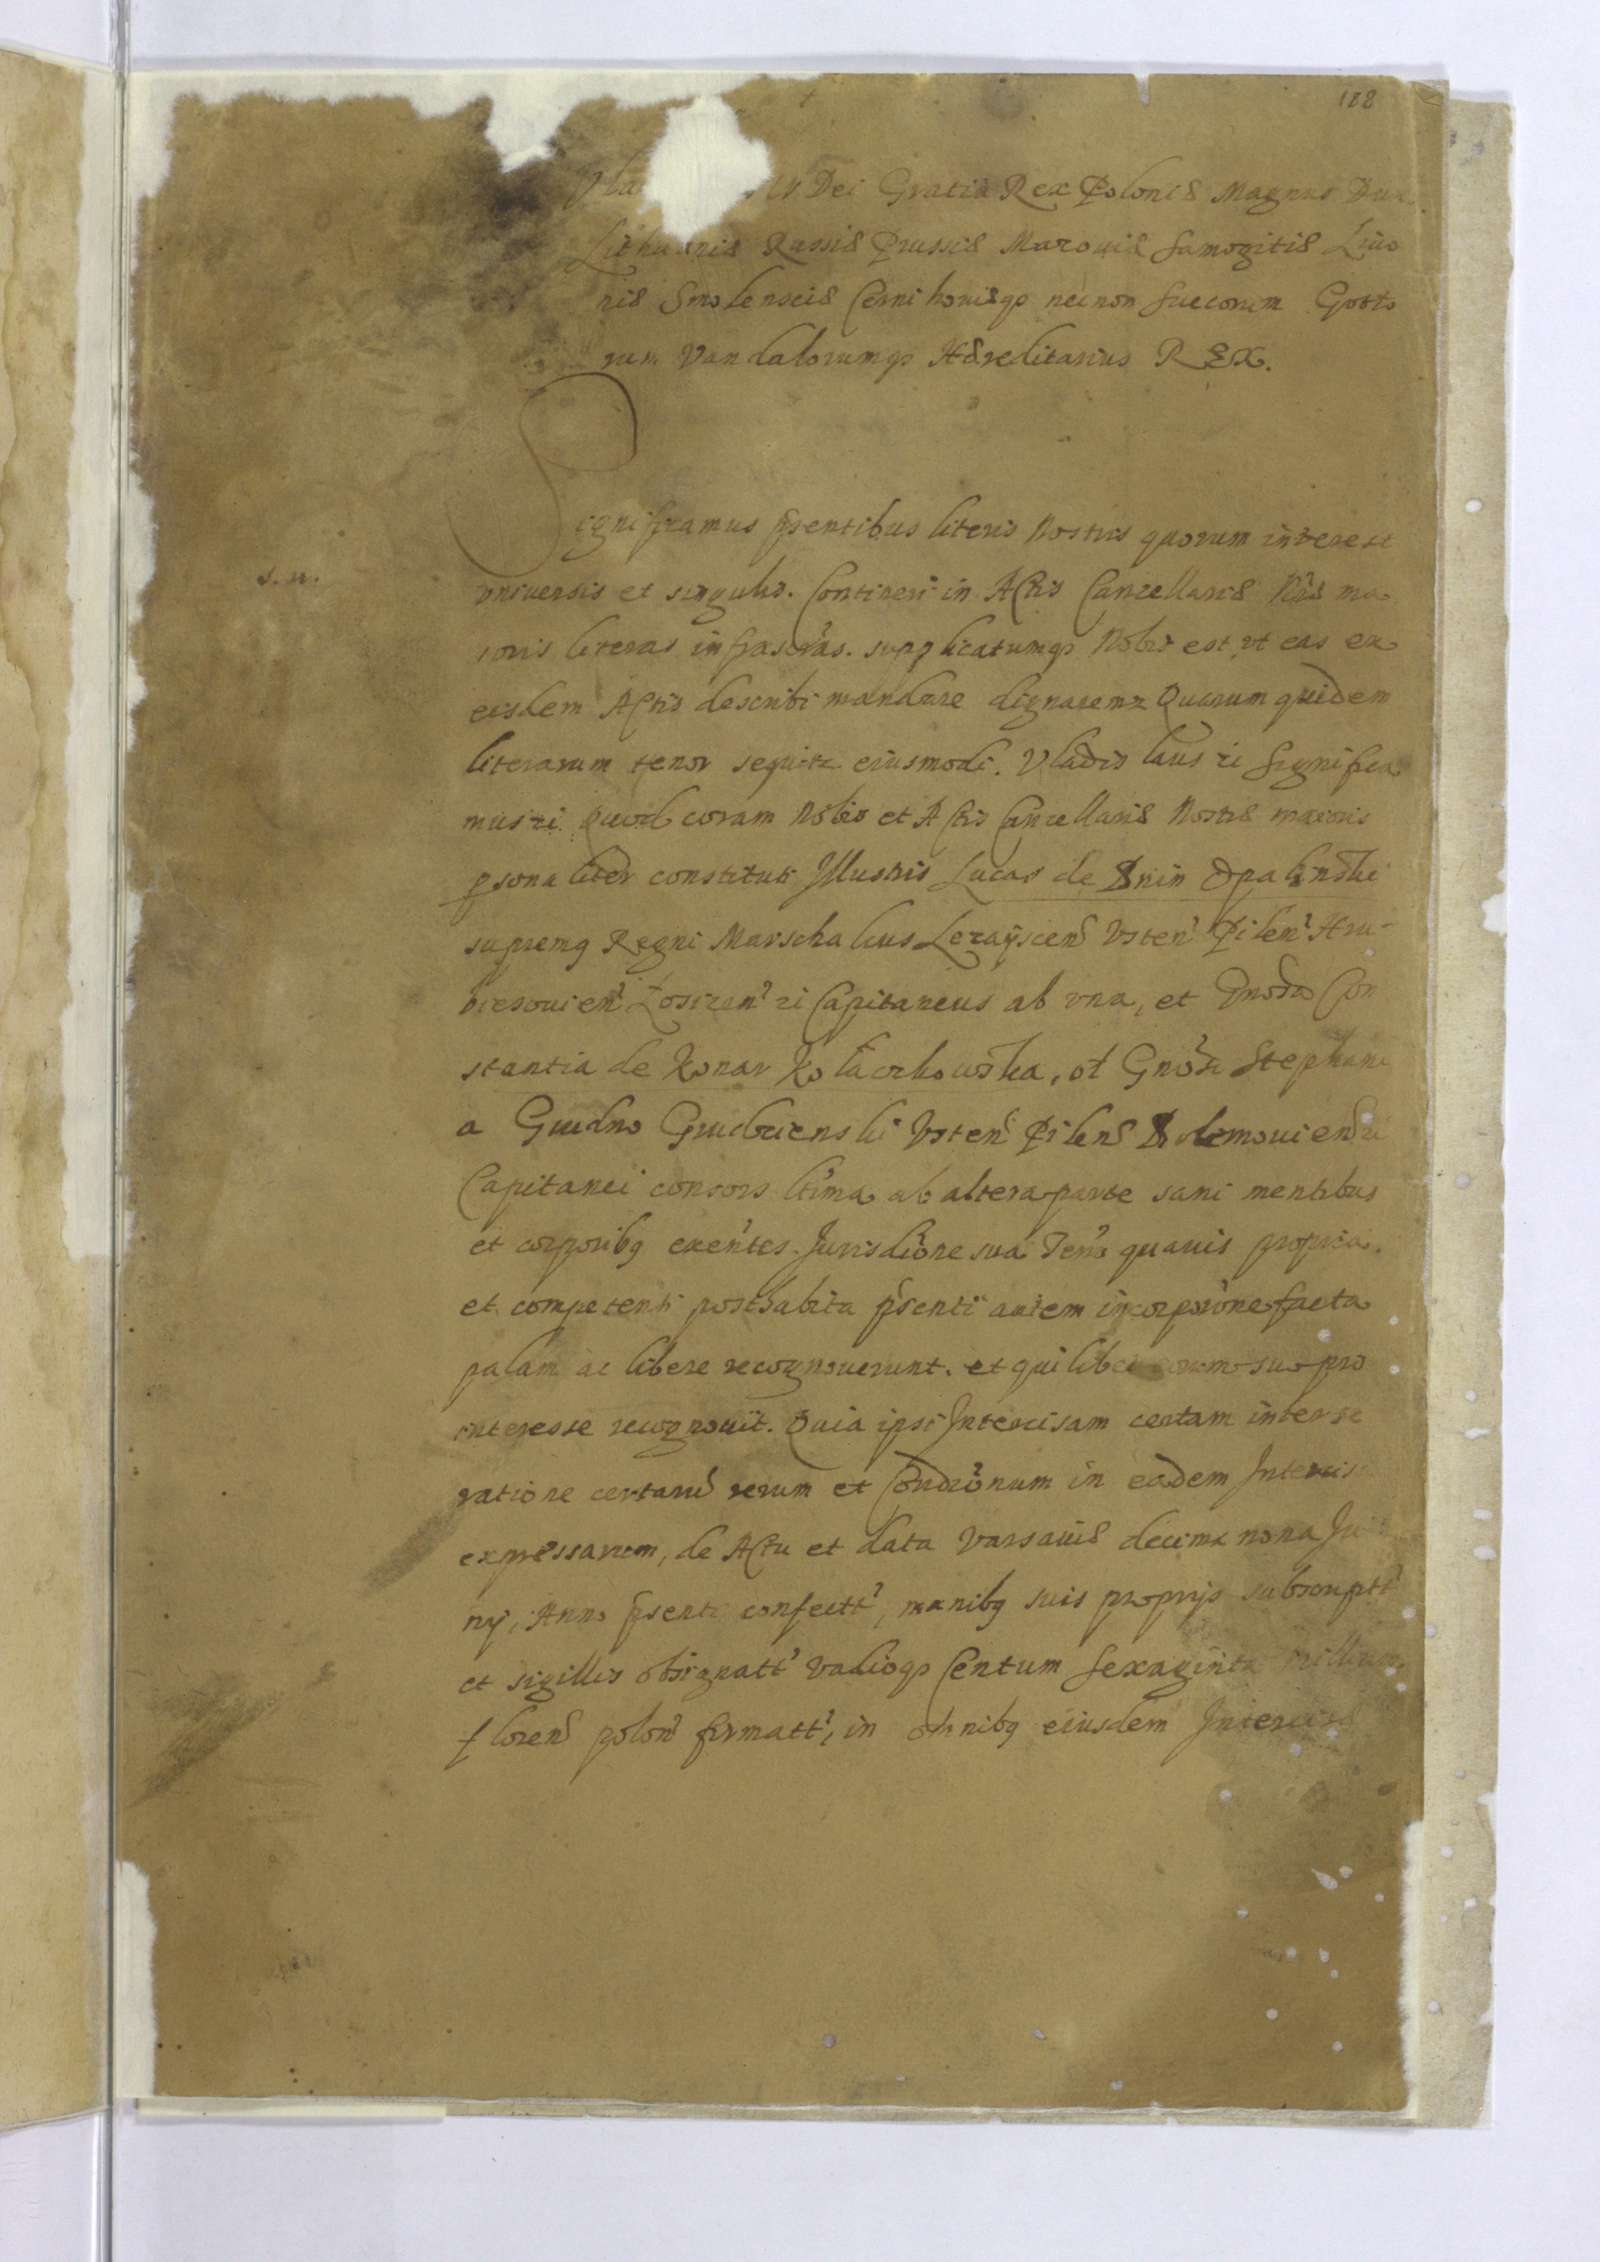 188
Dei Gratia Rex Poloniæ Magnus Dux
Lithuaniæ Russiæ Prussiæ Mazouiæ Samogitiæ Liuo
niæ Smolensciæ Cernihouiæq3 necnon Suecorum Gotto
rum Vandalorumq3 Hæreditarius REX.
Significamus pñtentibus literis Nostris quorum interest
s. n.
vniuersis et singulis. Contineri in Actis Cancellariæ Nræ ma
ioris literas infrascr'as. supplicatumq3 Nobis est vt eas ex
eisdem Actis describi mandare dignaremr Quarum quidem
literarum tenor sequitr eiusmodi. Vladislaus zc Significa
mus zc. Quod coram Nobis et Actis Cancellariæ Nostræ maioris
psonaliter constituti Illustris Lucas de Bnin Opalinski
supremq Regni Marschalcus Lezayscen Vsten' Pilen' Hru-
biesouien' Łosicen' zc Capitaneus ab vna, et Gnosa Con
stantia de Konar Kołaczkowska, ol Gnosi Stephani
a Grudno Grudzienski Vsten Pilen Bolemouien zc
Capitanei consors ltima ab altera parte sani mentibus
et corporibq exen'tes. Jurisdi'one sua Ten'o quauis propria
et competenti posthabita pñsenti autem incorpor'one facta
palam ac libere recognouerunt. et quilibet eorum suo pro
interesse recognouit. Quia ipsi Intercisam certam inter se
ratione certaru rerum et Condi'onum in eadem Intercis
expressarum, de Actu et data Varsauiæ decima nona Ju
nij, Anno pñsenti confectt', manibq suis proprijs subscriptt'
et sigillis obsignatt' vadioq3 Centum Sexaginta Millium
floren polon' firmatt', in omnibq eiusdem Intercisæ